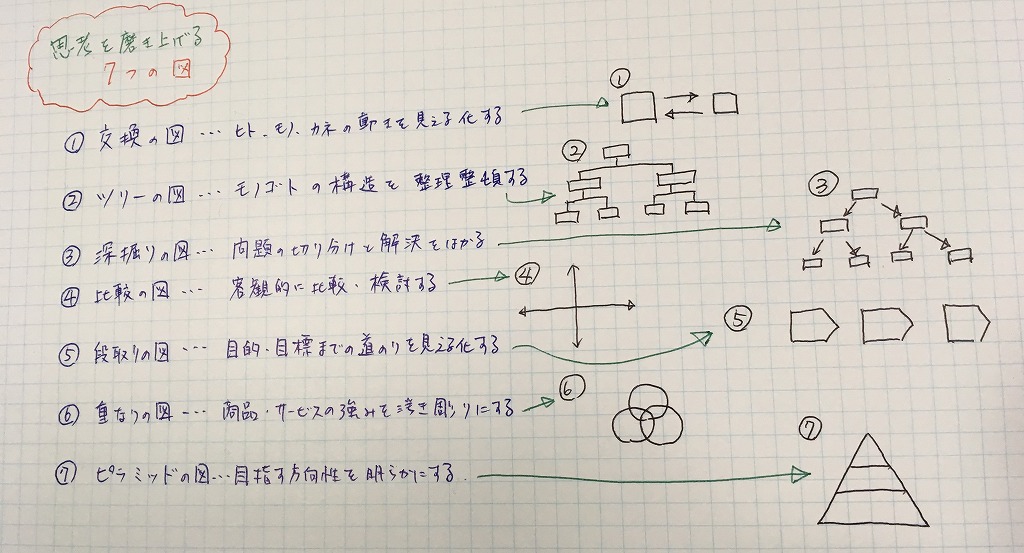 思考を磨き上げる
7つの図
① 交換の図 … ヒト、モノ、カネの動きを見える化する
② ツリーの図 … モノゴトの構造を整理整頓する
③ 深掘りの図 … 問題の切り分けと解決をはかる
④ 比較の図 … 客観的に比較・検討する
⑤ 段取りの図 … 目的・目標までの道のりを見える化する
⑥ 重なりの図 … 商品・サービスの強みを浮き彫りにする
⑦ ピラミッドの図 … 目指す方向性を明らかにする.
①
②
③
④
⑤
⑥
⑦